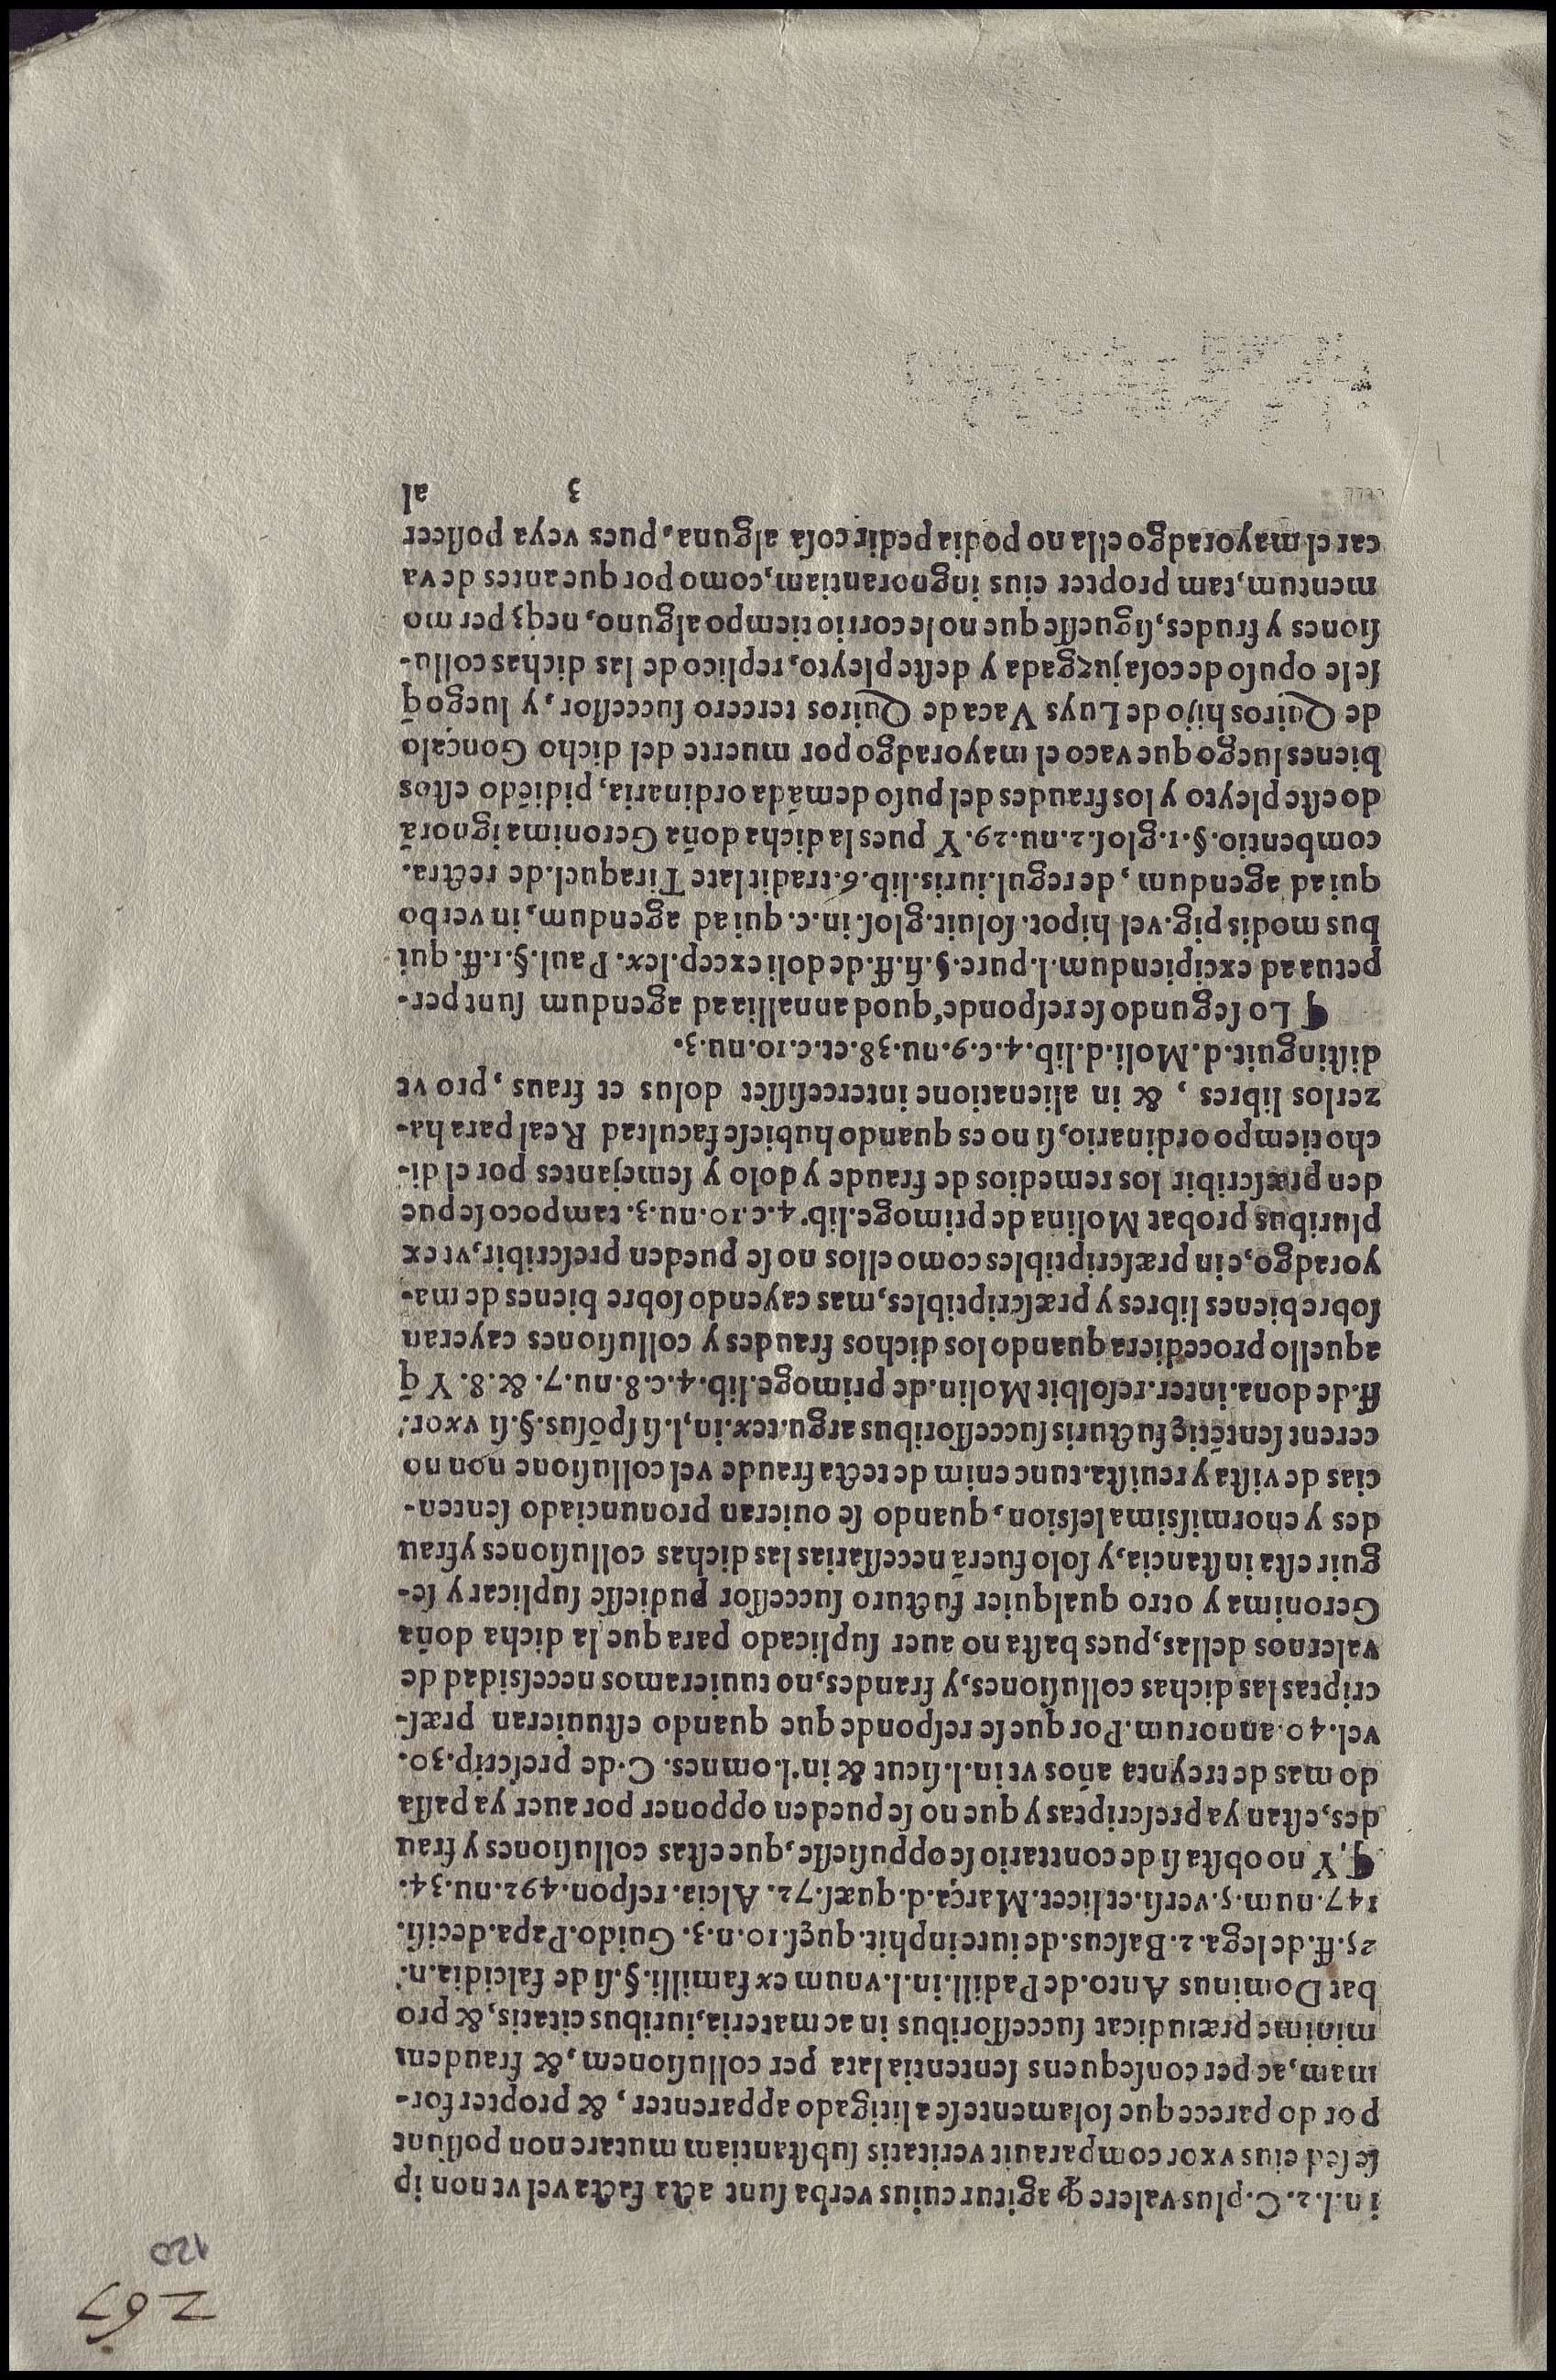 267
120
in.l.2. C. plus valere q̃ agitur cuius verba ſunt acta facta vel vt non ip
ſe ſed eius vxor comparauit veritatis ſubſtantiam mutare non poſſunt
por do parece que ſolamente ſe a litigado apparenter, & propter for-
mam, ac per conſequens ſententia lata per colluſionem, & fraudem
minime præiudicat ſucceſſoribus in ac materia, iuribus citatis, & pro
bat Dominus Anto. de Padill. in.l. vnum ex familli. §. ſi de falcidia. n.
25. ff. de lega. 2. Baſcus. de iure inphit. quęſ. 10. n. 3. Guido. Papa. deciſi.
147. num. 5. verſi. et licet. Março. d. quæſ. 72. Alcia. reſpon. 492. nu. 34.
¶ Y no obſta ſi de conttario ſe oppuſieſſe, que eſtas colluſiones y frau
des, eſtan ya preſcriptas y que no ſe pueden opponer por auer ya paſſa
do mas de treynta años vt in.l. ſicut & in.l. omnes. C. de preſcrip. 30.
vel. 40. annorum. Por que ſe reſponde que quando eſtuuieran præſ-
criptas las dichas colluſiones, y fraudes, no tuuieramos neceſsidad de
valernos dellas, pues baſta no auer ſuplicado para que la dicha doña
Geronima y otro qualquier fucturo ſucceſſor pudieſſe ſuplicar y ſe-
guir eſta inſtancia, y ſolo fuerã neceſſarias las dichas colluſiones y frau
des y enormiſsima leſsion, quando ſe ouieran pronunciado ſenten-
cias de viſta y reuiſta. tunc enim detecta fraude vel colluſione non no
cerent ſentẽtię fucturis ſucceſſoribus argu. tex. in,l. ſi ſpõſus. §. ſi vxor.
ff. de dona. inter. reſolbit Molin. de primoge. lib. 4. c. 8. nu. 7. & 8. Y q̃
aquello procediera quando los dichos fraudes y colluſiones cayeran
ſobre bienes libres y præſcriptibles, mas cayendo ſobre bienes de ma-
yoradgo, e in præſcriptibles como ellos no ſe pueden preſcribir, vt ex
pluribus probat Molina de primoge. lib. 4. c. 10. nu. 3. tampoco ſe pue
den præſcribir los remedios de fraude y dolo y ſemejantes por el di-
cho tiempo ordinario, ſi no es quando hubieſe facultad Real para ha-
zerlos libres, & in alienatione interceſiſſet dolus et fraus, pro vt
diſtinguit. d. Moli. d. lib. 4. c. 9. nu. 38. et. c. 10. nu. 3.
¶ Lo ſegundo ſe reſponde, quod annallia ad agendum ſunt per-
petua ad excipiendum. l. pure. §. fi. ff. de doli excep. lex. Paul. §. 1. ff. qui
bus modis pig. vel hipot. ſoluit. gloſ. in. c. qui ad agendum, in verbo
qui ad agendum, de regul. iuris. lib. 6. tradit late Tiraquel. de rectra.
combentio. §. 1. gloſ. 2. nu. 29. Y pues la dicha doña Geronima ignorã
do eſte pleyto y los fraudes del puſo demãda ordinaria, pidiẽdo eſtos
bienes luego que vaco el mayoradgo por muerte del dicho Gonçalo
de Quiros hijo de Luys Vaca de Quiros tercero ſucceſſor, y luego q̃
ſele opuſo de coſa juzgada y deſte pleyto, replico de las dichas collu-
ſiones y frudes, ſigueſſe que no le corrio tiempo alguno, neqꝫ per mo
mentum, tam propter eius ingnorantiam, como por que antes de va
car el mayoradgo ella no podia pedir coſa alguna, pues veya poſſeer
3 al